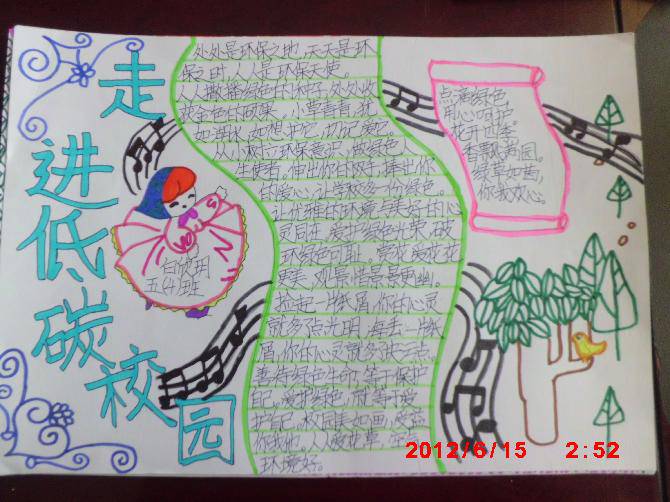 走进低碳校园
处处是环保之地，天天是环
保之时，人人是环保天使。
人人撒播绿色的种子，处处收
获金色的硕果。小草青青，犹
如进状，如想护它，切记爱它。
从小树立环保意识，做绿色人
生使者。伸出你的双手，捧出你
的爱心，让学校多一份绿色。
让优雅的环境与美好的心
灵同在。爱护绿色光荣，破
坏绿色可耻。爱花爱枝花
更美，观景惜景景更幽。
捡起一片纸屑，你的心灵
就多点光明，每丢一片纸
屑，你的心灵就多缺点。
善待绿色生命，等于保护
自己。爱护绿色，就等于爱
护自己。校园美如画，
你我他。人人爱花草，
环境好。
点滴绿色，
用心呵护。
花开四季，
香飘满园。
绿草如茵，
你我欢心。
白欣玥
五(4)班
2012/6/15 2:52